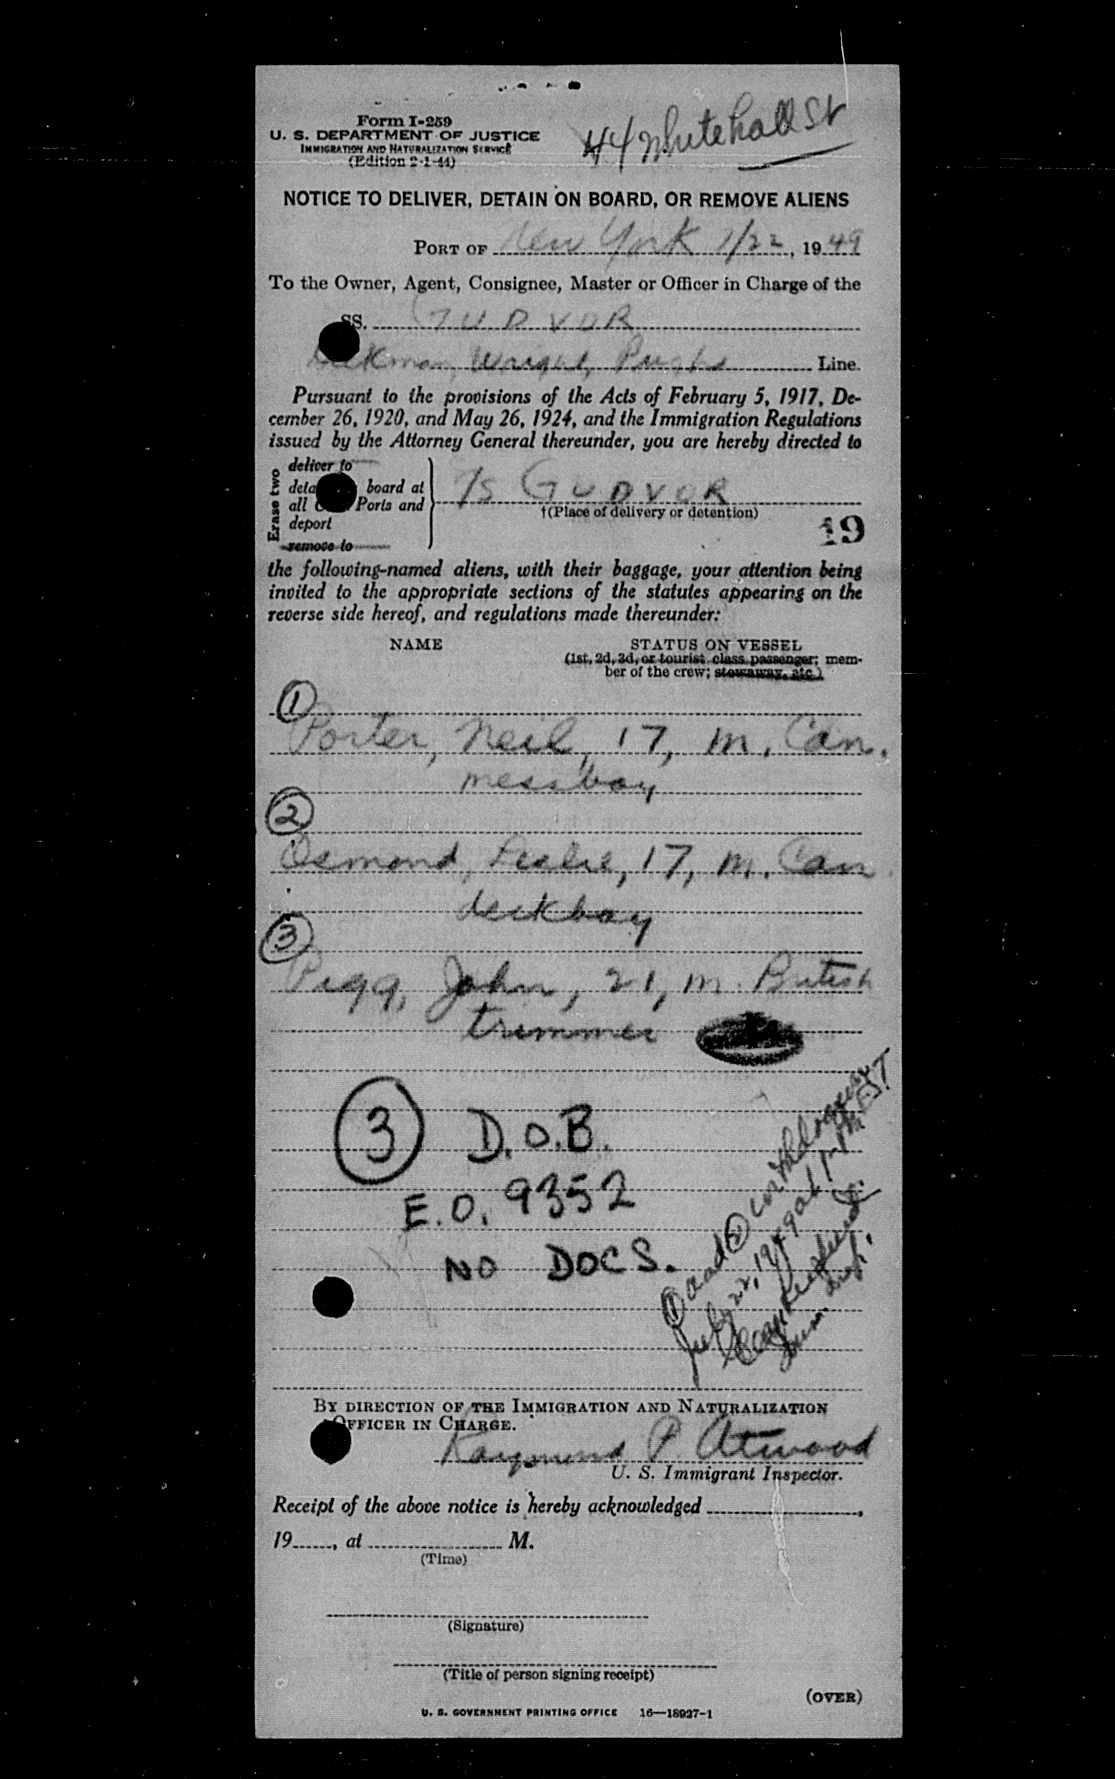 Form I-259
U. S. DEPARTMENT OF JUSTICE
IMMIGRATION AND NATURALIZATION SERVICE
(Edition 2-1-44)
44 Whitehall St
NOTICE TO DELIVER, DETAIN ON BOARD, OR REMOVE ALIENS
PORT OF New York 7/22, 1949
To the Owner, Agent, Consignee, Master or Officer in Charge of the
SS. GUDVOR
Wright, Line.
Pursuant to the provisions of the Acts of February 5, 1917, De-
cember 26, 1920, and May 26, 1924, and the Immigration Regulations
issued by the Attorney General thereunder, you are hereby directed to
Erase two
deliver to
board at
all Ports and
deport
remove to
GUDVOR
†(Place of delivery or detention)
19
the following-named aliens, with their baggage, your attention being
invited to the appropriate sections of the statutes appearing on the
reverse side hereof, and regulations made thereunder:
NAME STATUS ON VESSEL
(1st, 2d, 3d, or tourist class passenger; mem-
ber of the crew; stowaway, etc.)
1
Porter, Neil, 17, m. Can.
messboy
2
Osmond, Leslie, 17, m. Can
deckboy
3
Pigg, John, 21, m. British
trimmer
3 D.O.B.
E.O. 9352
NO DOCS.
1 and 2 withdrawn
July 22, 1949 at EST
BY DIRECTION OF THE IMMIGRATION AND NATURALIZATION
OFFICER IN CHARGE.
Raymond P Atwood
U. S. Immigrant Inspector.
Receipt of the above notice is hereby acknowledged
19, at M.
(Time)
(Signature)
(Title of person signing receipt)
(OVER)
U. S. GOVERNMENT PRINTING OFFICE 16—18927-1